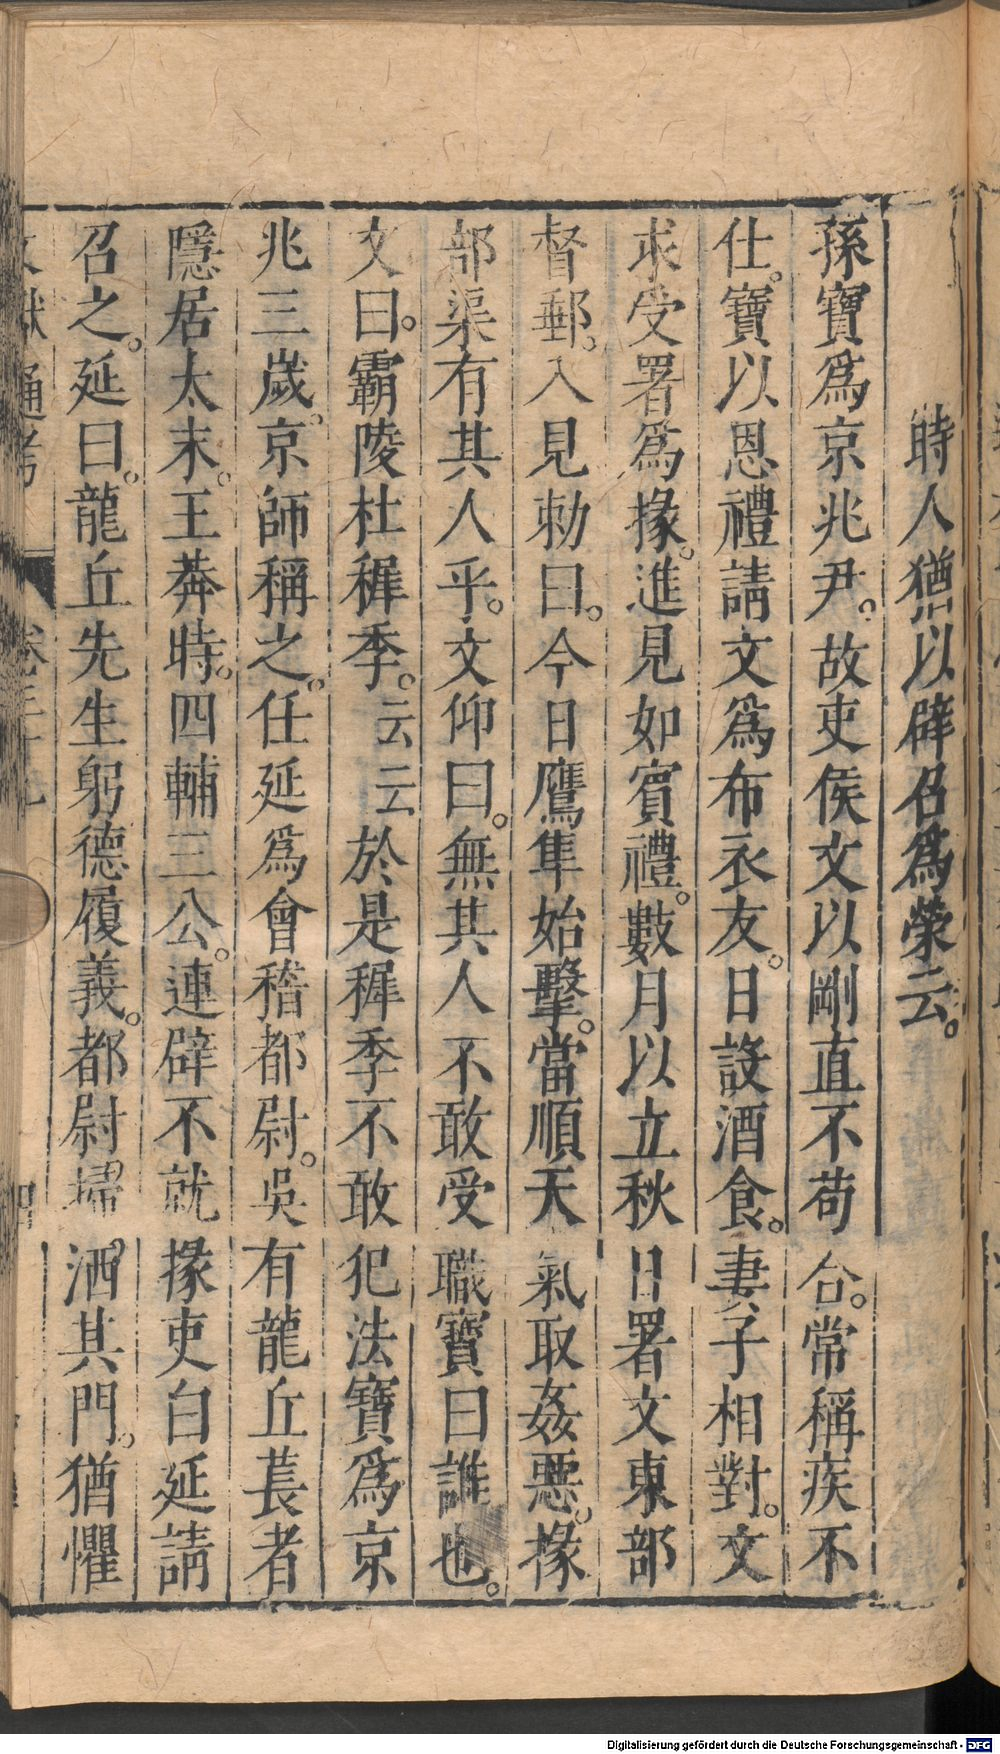 時人猶以辟召爲榮云。
孫寶爲京兆尹。故吏侯文以剛直不苟合。常稱疾不
仕。寶以恩禮請文爲布衣友。日設酒食。妻子相對。文
求受署爲掾。進見如賓禮。數月以立秋日署文東部
督郵。入見勅曰。今日鷹隼始擊。當順天氣取姦惡。掾
部渠有其人乎。文仰曰。無其人不敢受職寶曰誰也。
文曰。霸陵杜穉季。云云於是穉季不敢犯法寶爲京
兆三歲。京師稱之。任延爲會稽都尉。吳有龍丘萇者
隱居太末。王莽時。四輔三公。連辟不就掾吏白延請
召之。延曰。龍丘先生躬德履義。都尉掃洒其門。猶懼
文獻通考 卷三十九
Digitalisierung gefördert durch die Deutsche Forschungsgemeinschaft - DFG